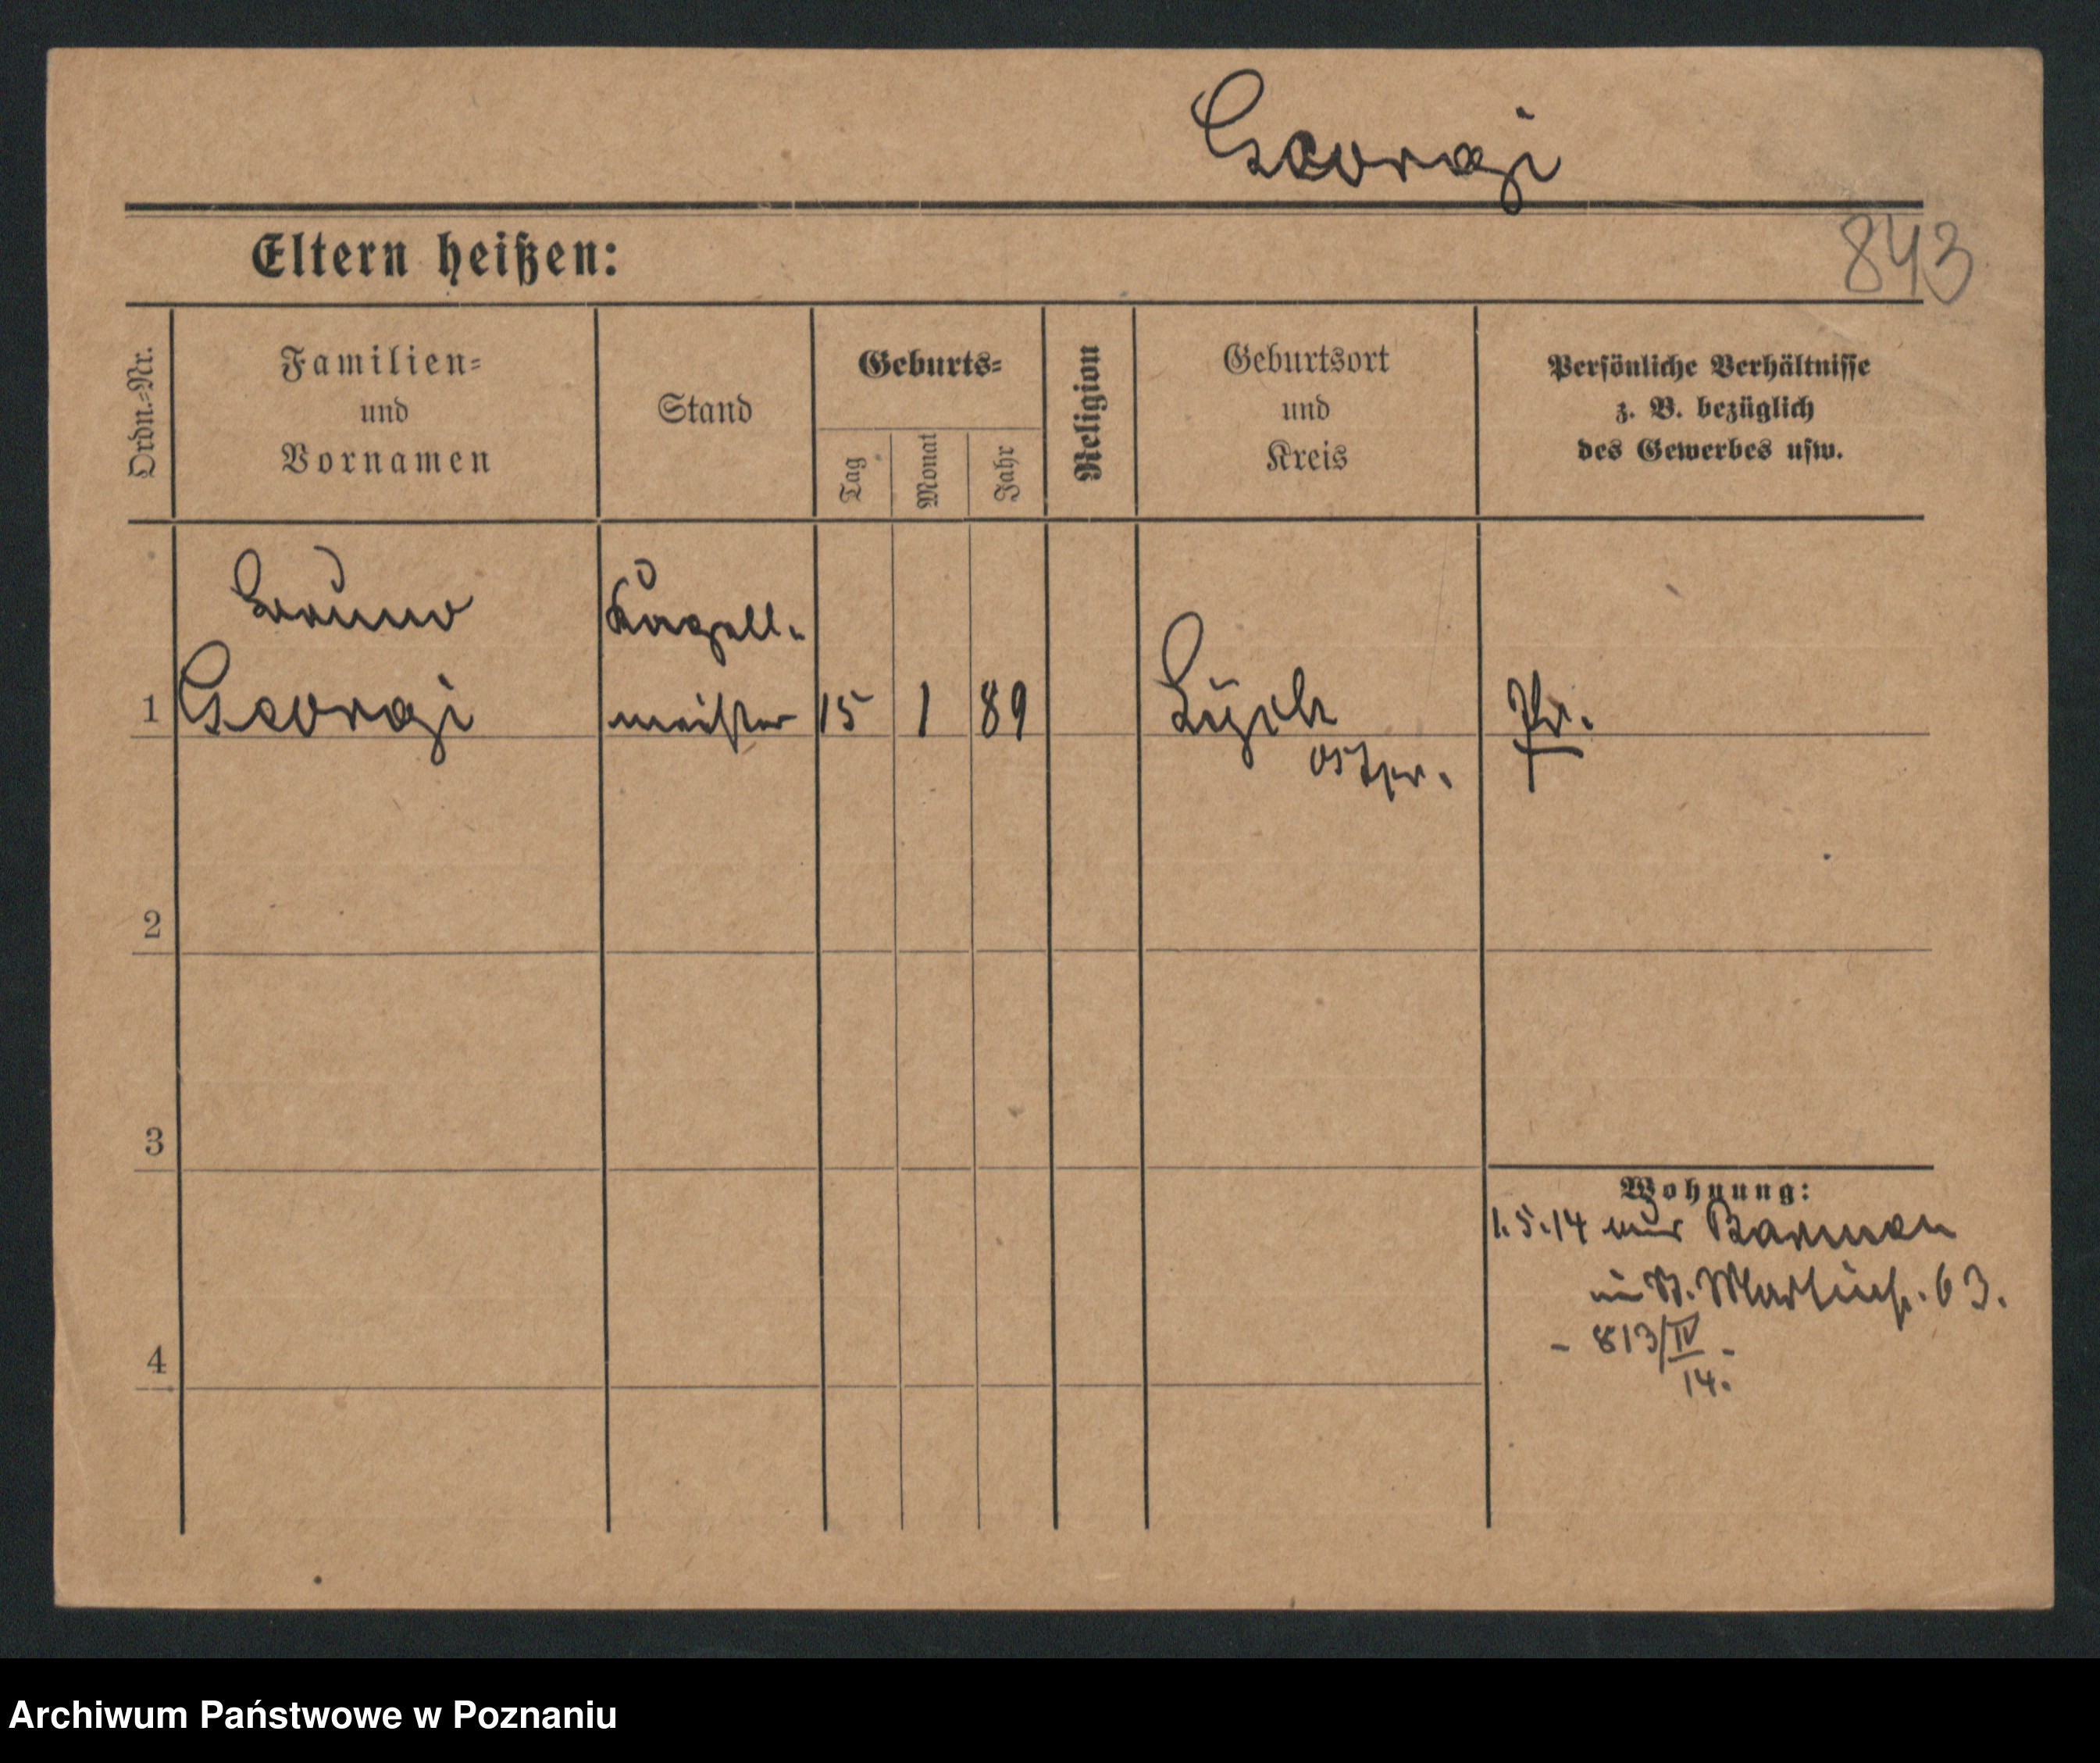 Georgi
843
Eltern heißen:
Ordn.-Nr.
Familien-
und
Vornamen
Stand
Geburts-
Tag
Monat
Jahr
Religion
Geburtsort
und
Kreis
Persönliche Verhältnisse
z. B. bezüglich
des Gewerbes usw.
1
Bruno
Georgi
Kapell-
meister
15
1
89
Lyck
Ostpr.
Pr.
2
3
4
Wohnung:
1.5.14 aus Barmen
in St. Martinstr. 63.
- 813/IV -
14.
Archiwum Państwowe w Poznaniu